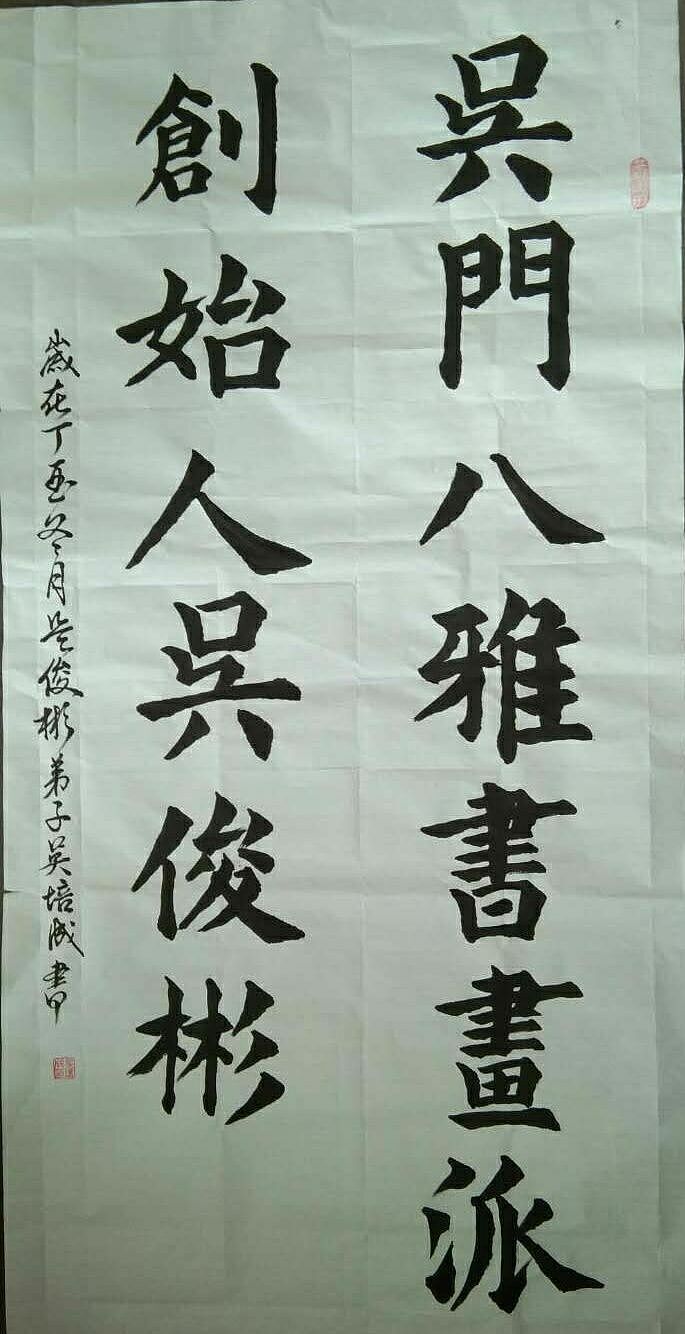 吳門八雅書畫派
創始人吳俊彬
歲在丁酉冬月吴俊彬弟子吴培成書